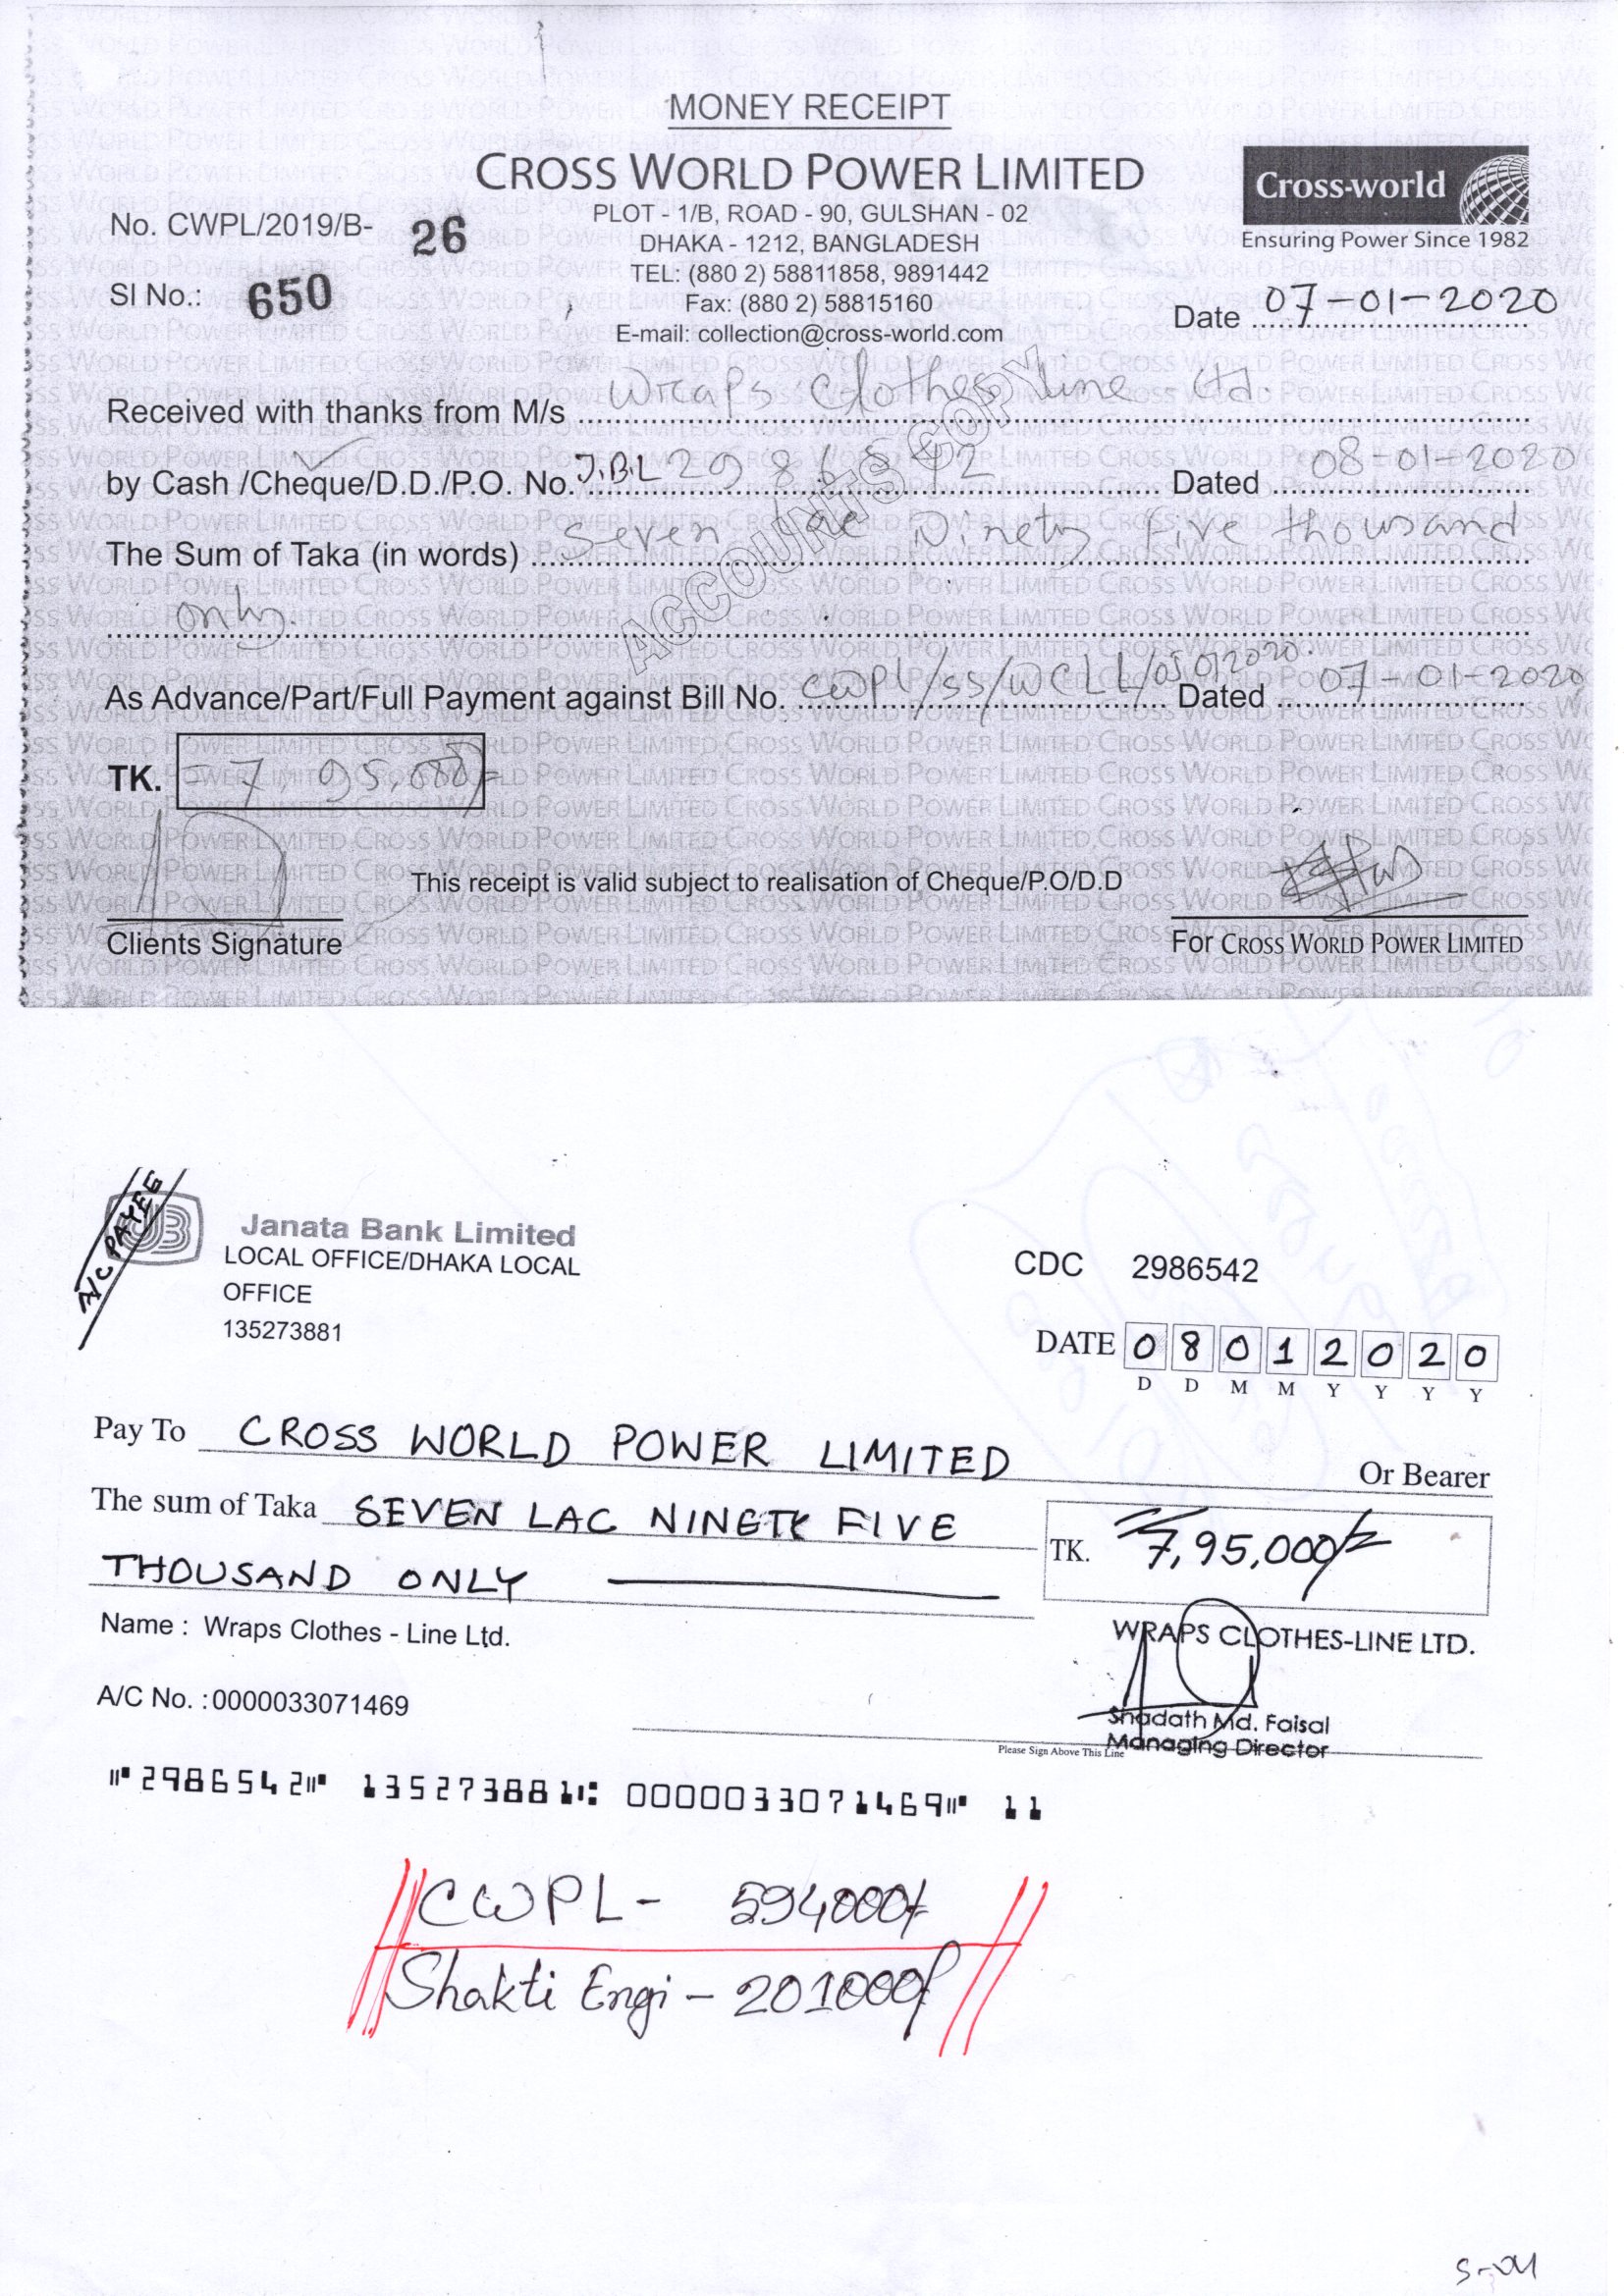 MONEY RECEIPT
CROSS WORLD POWER LIMITED
Cross-world
Ensuring Power Since 1982
No. CWPL/2019/B- 26
PLOT - 1/B, ROAD - 90, GULSHAN - 02
DHAKA - 1212, BANGLADESH
TEL: (880 2) 58811858, 9891442
Sl No.: 650
Fax: (880 2) 58815160
E-mail: collection@cross-world.com
Date 07-01-2020
Received with thanks from M/s Wraps Clothes Line Ltd.
by Cash /Cheque/D.D./P.O. No. J.B.L 2986542 Dated 08-01-2020
The Sum of Taka (in words) Seven lac Ninety Five thousand
only.
ACCOUNTS COPY
As Advance/Part/Full Payment against Bill No. CWPL/SS/WCLL/ Dated 07-01-2020
TK. 7,95,000/=
This receipt is valid subject to realisation of Cheque/P.O/D.D
Clients Signature
For CROSS WORLD POWER LIMITED
A/C PAYEE
JB
Janata Bank Limited
LOCAL OFFICE/DHAKA LOCAL
OFFICE
135273881
CDC 2986542
DATE 08012020
D D M M Y Y Y Y
Pay To CROSS WORLD POWER LIMITED
Or Bearer
The sum of Taka SEVEN LAC NINETY FIVE
THOUSAND ONLY
TK. 7,95,000/=
Name : Wraps Clothes - Line Ltd.
WRAPS CLOTHES-LINE LTD.
A/C No. :0000033071469
Shadath Md. Faisal
Managing Director
Please Sign Above This Line
⑈2986542⑈ 135273881⑆ 0000033071469⑈ 11
CWPL - 594000/=
Shakti Engi - 201000/=